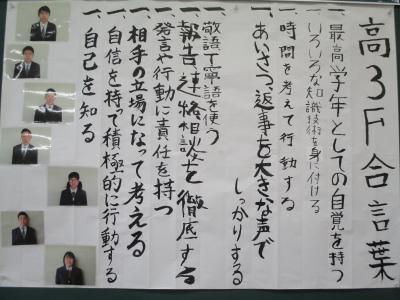 高3F合言葉
一、最高学年としての自覚を持つ
一、いろいろな知識技術を身に付ける
一、時間を考えて行動する
一、あいさつ、返事を大きな声で
しっかりする
一、敬語丁寧語を使う
一、報告連絡相談を徹底する
一、発言や行動に責任を持つ
一、相手の立場になって考える
一、自信を持て積極的に行動する
一、自己を知る